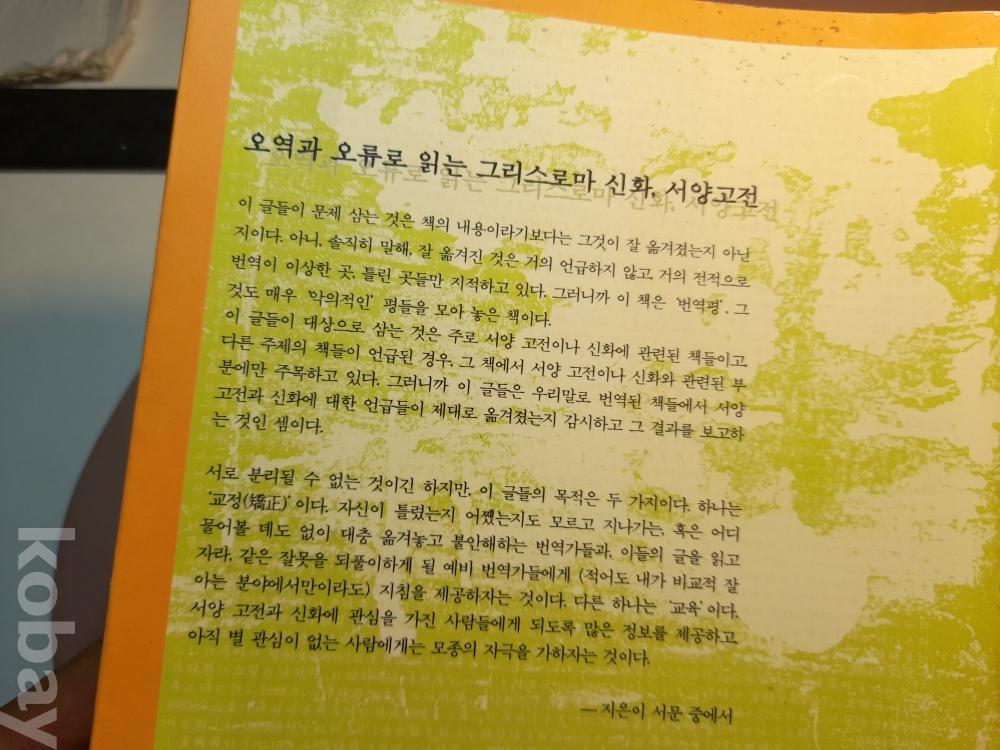 오역과 오류로 읽는 그리스로마 신화, 서양고전
이 글들이 문제 삼는 것은 책의 내용이라기보다는 그것이 잘 옮겨졌는지 아닌
지이다. 아니, 솔직히 말해, 잘 옮겨진 것은 거의 언급하지 않고 거의 전적으로
번역이 이상한 곳, 틀린 곳들만 지적하고 있다. 그러니까 이 책은 '번역평', 그
것도 매우 '악의적인' 평들을 모아 놓은 책이다.
이 글들이 대상으로 삼는 것은 주로 서양 고전이나 신화에 관련된 책들이고,
다른 주제의 책들이 언급된 경우, 그 책에서 서양 고전이나 신화와 관련된 부
분에만 주목하고 있다. 그러니까 이 글들은 우리말로 번역된 책들에서 서양
고전과 신화에 대한 언급들이 제대로 옮겨졌는지 감시하고 그 결과를 보고하
는 것인 셈이다.
서로 분리될 수 없는 것이긴 하지만, 이 글들의 목적은 두 가지이다. 하나는
'교정(矯正)'이다. 자신이 틀렸는지 어쨌는지도 모르고 지나가는, 혹은 어디
물어볼 데도 없이 대충 옮겨놓고 불안해하는 번역가들과, 이들의 글을 읽고
자라, 같은 잘못을 되풀이하게 될 예비 번역가들에게 (적어도 내가 비교적 잘
아는 분야에서만이라도) 지침을 제공하자는 것이다. 다른 하나는 '교육'이다.
서양 고전과 신화에 관심을 가진 사람들에게 되도록 많은 정보를 제공하고,
아직 별 관심이 없는 사람에게는 모종의 자극을 가하자는 것이다.
— 지은이 서문 중에서
kobay